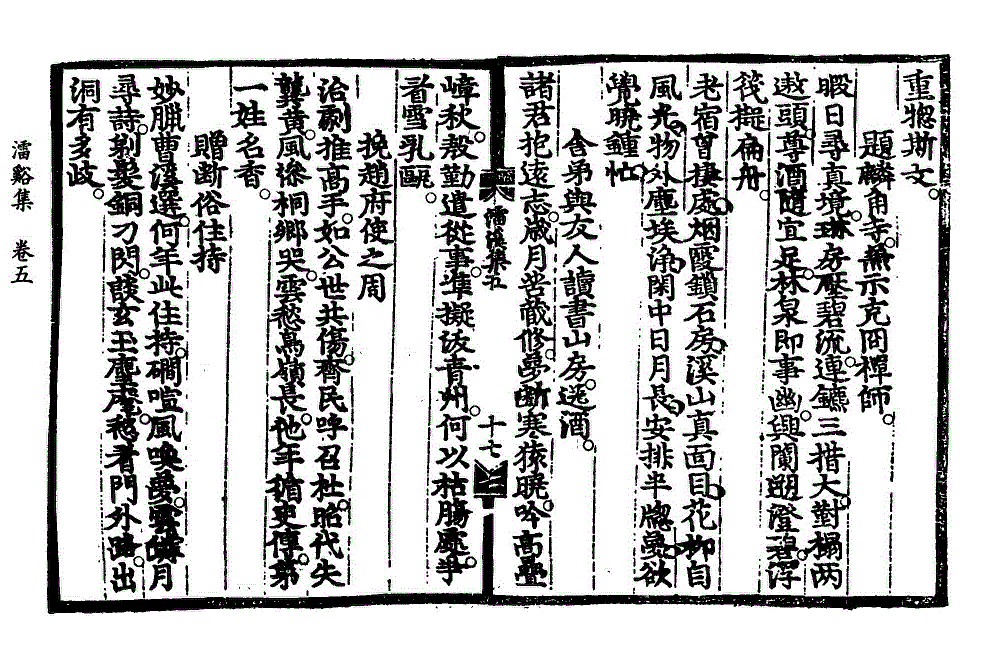 重惚斯文
題麟角寺兼示克囘禪師
暇日尋真境琳房壓碧流連鑣三措大對榻两
遨頭尊酒隨宜足林泉即事幽興闌遡澄碧浮
筏擬扁舟
老宿曾棲處烟霞鎖石房溪山真面目花柳自
風光物外塵埃淨閑中日月長安排半牕夢欲
覺曉鍾忙
舍弟與友人讀書山房送酒
諸君抱遠志歲月苦藏修夢斷寒猿曉吟高疊
嶂秋殷勤遣從事準擬泼青州何以枯腸處爭
者雪乳甌
挽趙府使之周
治劇推高手如公世共傷齊民呼召杜昭代失
龔黄風慘桐鄉哭雲愁鳥嶺長他年循史傳第
一姓名香
贈断俗住持
妙臘曹溪選何年此住持磵喧風喚夢雲月
尋詩剃髮銅刀閃談玄玉麈麾愁看門外路出
洞有多歧
濡溪集五
十七
濡谿集 卷五